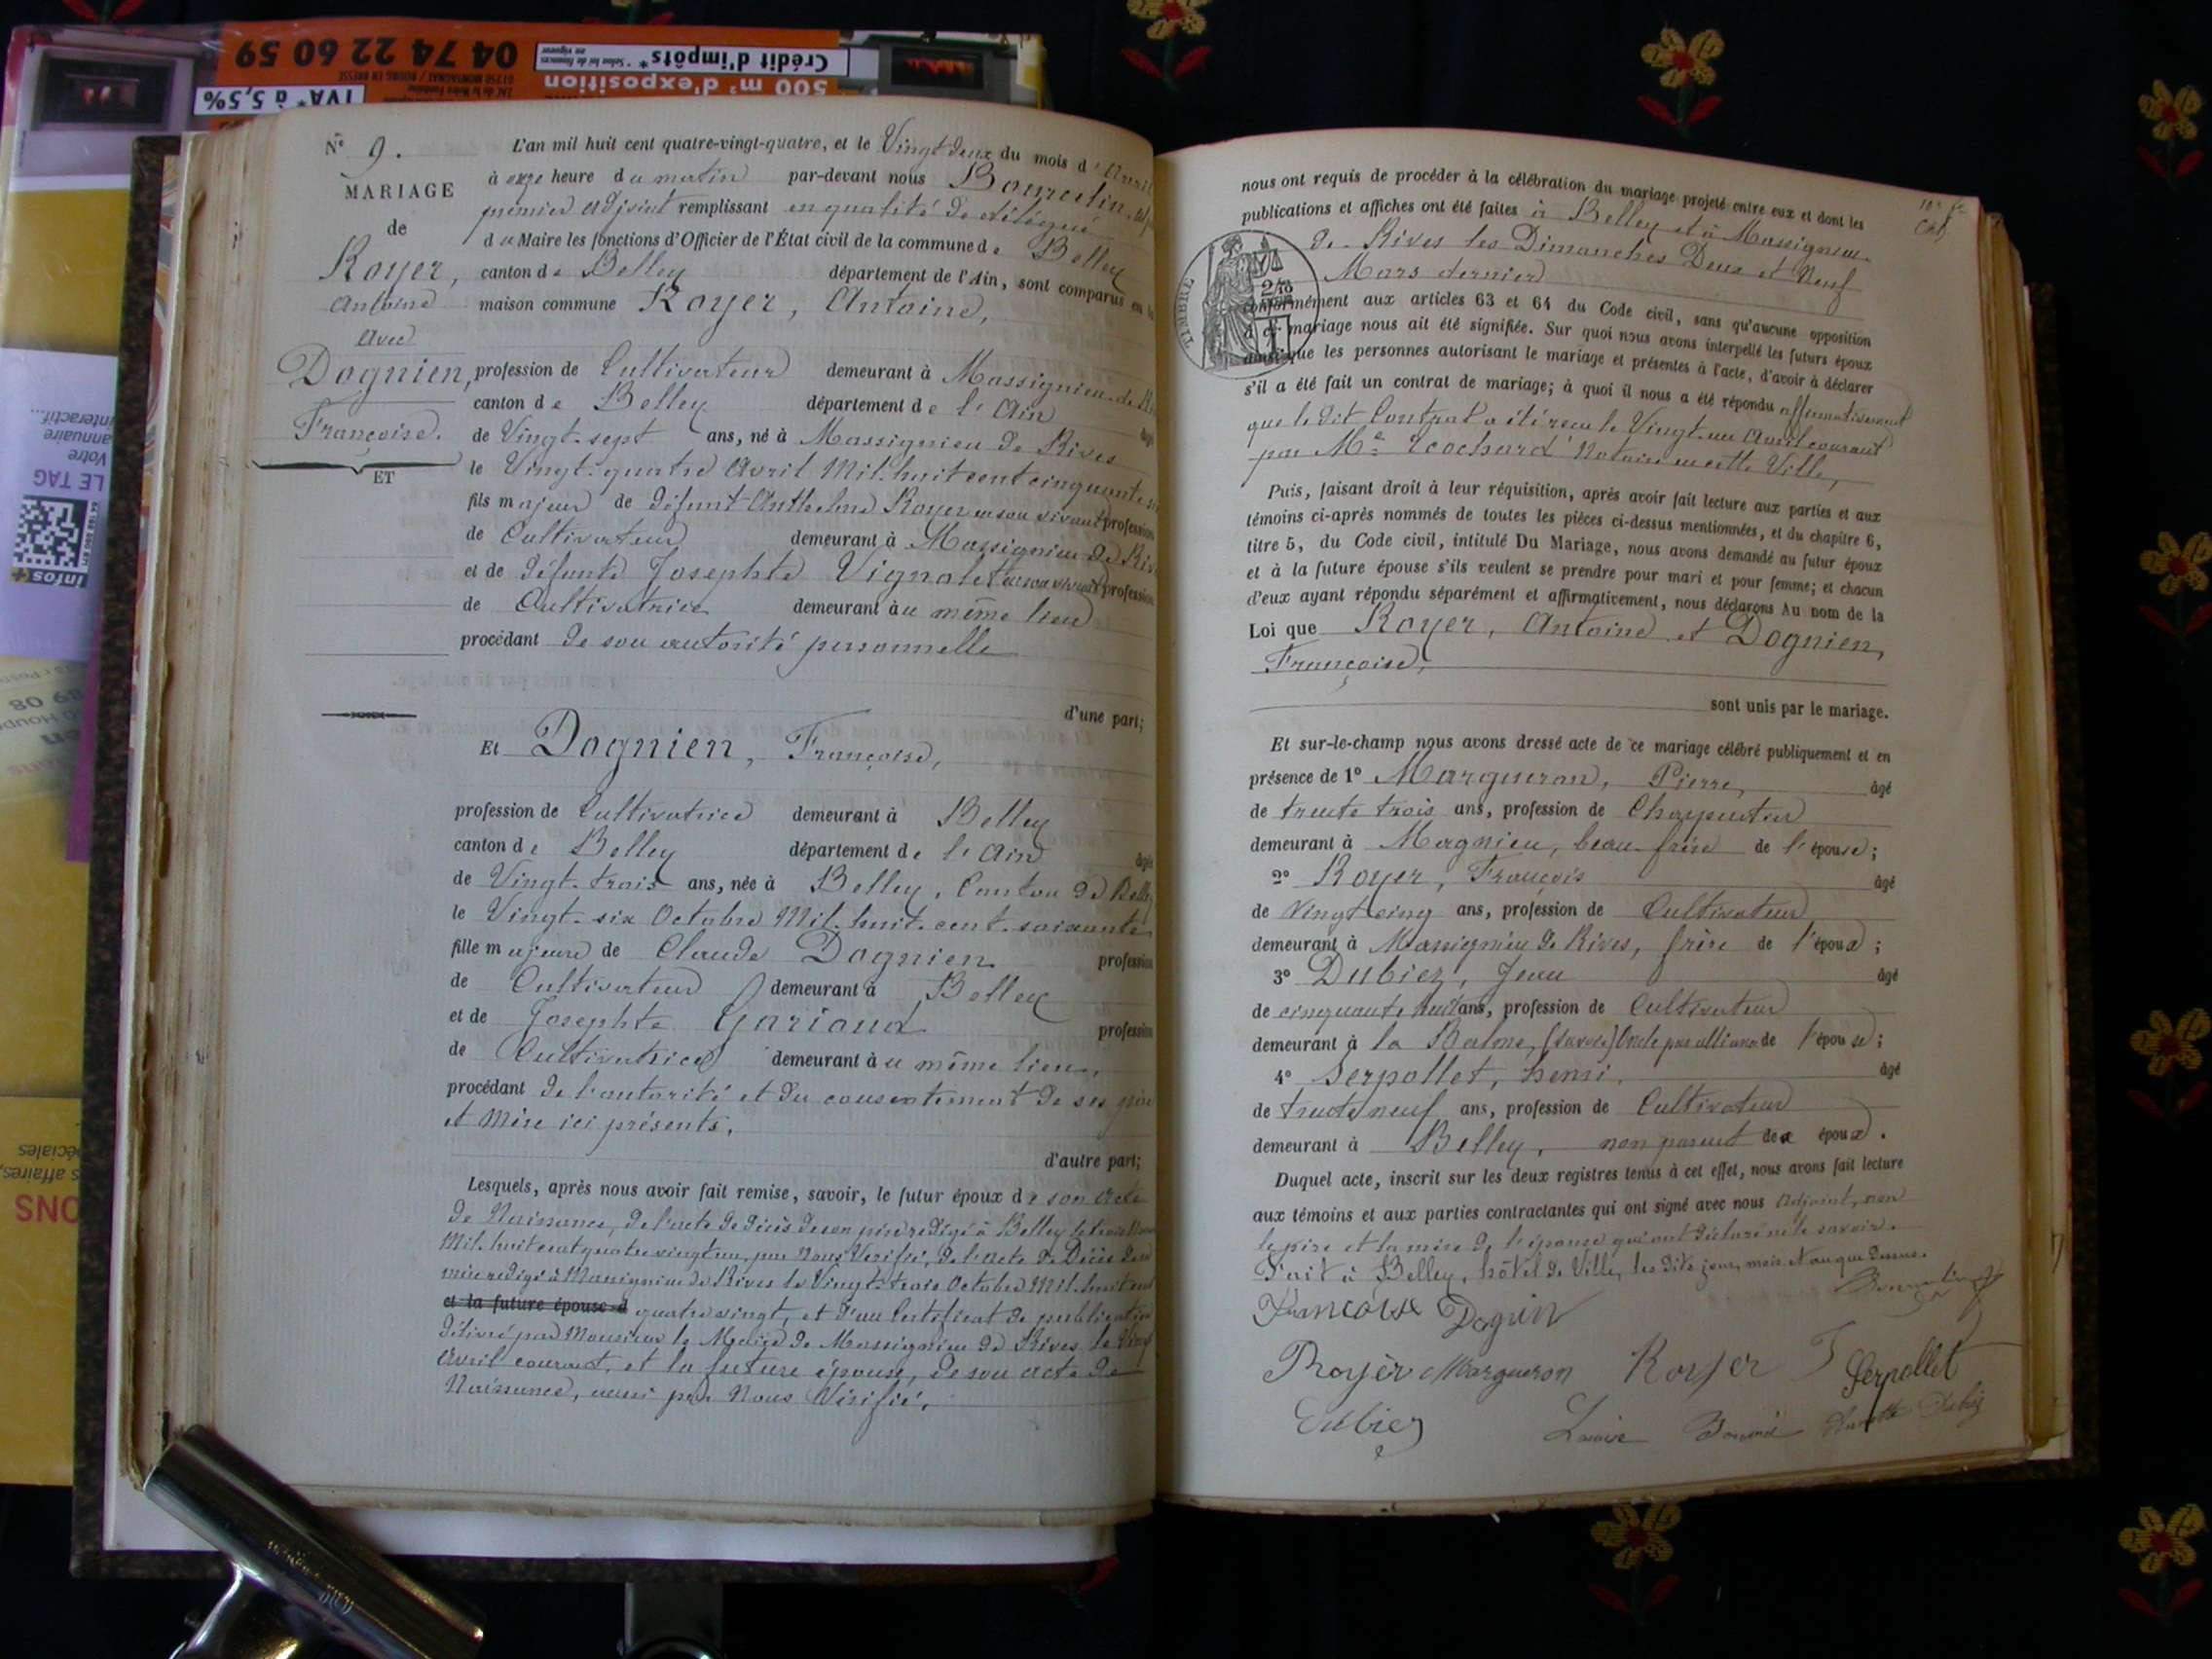 04 74 22 60 59
Crédit d'impôts*
TVA* à 5,5%
500 m² d'exposition
Votre
annuaire
interactif...
LE TAG
infos+
N° 9.
MARIAGE
de
Royer,
Antoine
Avec
Dognien,
Françoise.
ET
L'an mil huit cent quatre-vingt-quatre, et le Vingt deux du mois d'Avril
à onze heure du matin par-devant nous
premier adjoint remplissant en qualité de délégué
du Maire les fonctions d'Officier de l'État civil de la commune de Belley
canton de Belley département de l'Ain, sont comparus en la
maison commune Royer, Antoine,
profession de Cultivateur demeurant à Massignieu de
canton de Belley département de l'Ain âgé
de Vingt-sept ans, né à Massignieu de Rives
le Vingt-quatre Avril Mil-huit cent cinquante
fils majeur de défunt Anthelme Royer en son vivant profession
de Cultivateur demeurant à Massignieu de
et de défunte Josephte Vignolet en son vivant profession
de Cultivatrice demeurant au même lieu
procédant de son autorité personnelle
d'une part;
Et Dognien, Françoise,
profession de Cultivatrice demeurant à Belley
canton de Belley département de l'Ain âgée
de Vingt-trois ans, née à Belley, Canton de Belley
le Vingt-six Octobre Mil-huit-cent-soixante
fille majeure de Claude Dognien profession
de Cultivateur demeurant à Belley
et de Josephte Garioud profession
de Cultivatrice demeurant au même lieu,
procédant de l'autorité et du consentement de ses père
et Mère ici présents,
d'autre part;
Lesquels, après nous avoir fait remise, savoir, le futur époux de son acte
de Naissance, de l'acte de décès de son père rédigé à Belley le trois
Mil-huit cent quatre vingt un, par Nous Vérifié, de l'acte de Décès de sa
mère rédigé à Massignieu de Rives le Vingt-trois Octobre Mil-huit cent
et la future épouse d quatre vingt, et d'un Certificat de publication
délivré par Monsieur le Maire de Massignieu de Rives le
Avril courant, et la future épouse, de son acte de
Naissance, aussi par Nous Vérifié,
nous ont requis de procéder à la célébration du mariage projeté entre eux et dont les
publications et affiches ont été faites à Belley et à Massignieu
de Rives les Dimanches Deux et Neuf
Mars dernier
TIMBRE
conformément aux articles 63 et 64 du Code civil, sans qu'aucune opposition
à ce mariage nous ait été signifiée. Sur quoi nous avons interpellé les futurs époux
ainsi que les personnes autorisant le mariage et présentes à l'acte, d'avoir à déclarer
s'il a été fait un contrat de mariage; à quoi il nous a été répondu affirmativement
que le dit Contrat a été reçu le Vingt-un Avril courant
par Me Trochard Notaire en cette Ville,
Puis, faisant droit à leur réquisition, après avoir fait lecture aux parties et aux
témoins ci-après nommés de toutes les pièces ci-dessus mentionnées, et du chapitre 6,
titre 5, du Code civil, intitulé Du Mariage, nous avons demandé au futur époux
et à la future épouse s'ils veulent se prendre pour mari et pour femme; et chacun
d'eux ayant répondu séparément et affirmativement, nous déclarons Au nom de la
Loi que Royer, Antoine et Dognien,
Françoise,
sont unis par le mariage.
Et sur-le-champ nous avons dressé acte de ce mariage célébré publiquement et en
présence de 1° Margueron, Pierre, âgé
de trente trois ans, profession de Charpentier
demeurant à Magnieu, beau-frère de l'épouse;
2° Royer, François âgé
de Vingt cinq ans, profession de Cultivateur
demeurant à Massignieu de Rives, frère de l'époux;
3° Dubiez, Jean âgé
de cinquante huit ans, profession de Cultivateur
demeurant à la Balme, (Savoie) Oncle par alliance de l'épouse;
4° Serpollet, henri, âgé
de trente neuf ans, profession de Cultivateur
demeurant à Belley, non parent des époux.
Duquel acte, inscrit sur les deux registres tenus à cet effet, nous avons fait lecture
aux témoins et aux parties contractantes qui ont signé avec nous Adjoint, non
le père et la mère de l'épouse qui ont déclaré ne le savoir.
Fait à Belley, hôtel de Ville, les dits jour, mois et an que dessus.
Françoise Dognin
Royer Margueron Royer F Serpollet
Dubiez